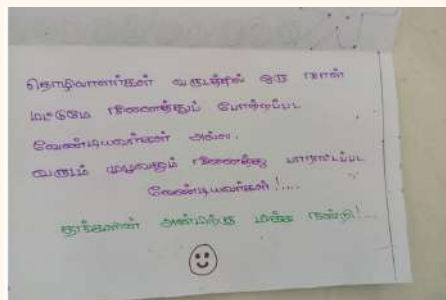 தொழிலாளர்கள் வருடத்தில் ஒரு நாள்
மட்டுமே நினைத்துப் போற்றப்பட
வேண்டியவர்கள் அல்ல.
வருடம் முழுவதும் நினைத்து பாராட்டப்பட
வேண்டியவர்கள்!....
தங்களின் அன்பிற்கு மிக்க நன்றி!...